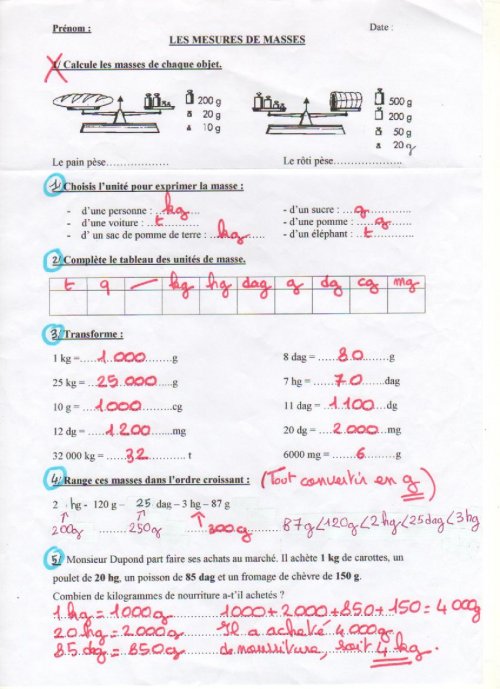 Prénom : Date :
LES MESURES DE MASSES
1/ Calcule les masses de chaque objet.
200 g 500 g
20 g 200 g
10 g 50 g
20 g
Le pain pèse……………… Le rôti pèse………………..
1/ Choisis l'unité pour exprimer la masse :
- d'une personne : ..kg…. - d'un sucre : …g…………..
- d'une voiture : ..t………. - d'une pomme : ……g……..
- d' un sac de pomme de terre : ..kg…….. - d'un éléphant : ..t………..
2/ Complète le tableau des unités de masse.
t q — kg hg dag g dg cg mg
3/ Transforme :
1 kg =…..1.000………g 8 dag = ……80………g
25 kg = …25.000…..g 7 hg = ……70……….dag
10 g = …1000……….cg 11 dag = …1100…..dg
12 dg = …..1200…….mg 20 dg = …2.000…mg
32 000 kg = ….32………… t 6000 mg = ……6………g
4/ Range ces masses dans l'ordre croissant : (Tout convertir en g)
2 hg - 120 g – 25 dag – 3 hg – 87 g
200g 250g 300g 87g<120g<2hg<25dag<3hg
5/ Monsieur Dupond part faire ses achats au marché. Il achète 1 kg de carottes, un
poulet de 20 hg, un poisson de 85 dag et un fromage de chèvre de 150 g.
Combien de kilogrammes de nourriture a-t'il achetés ?
1 kg = 1000g 1000+2000+850+150=4000g
20 hg = 2000g Il a acheté 4000g
85 dg = 850g de nourriture, soit 4 kg.